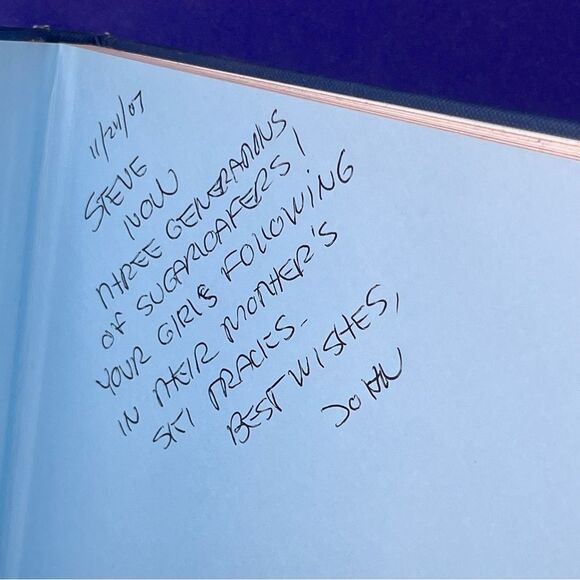 11/24/07
STEVE
NOW
THREE GENERATIONS
OF SUGARLOAFERS!
YOUR GIRLS FOLLOWING
IN THEIR MOTHER'S
SKI TRACKS-
BEST WISHES,
JOHN